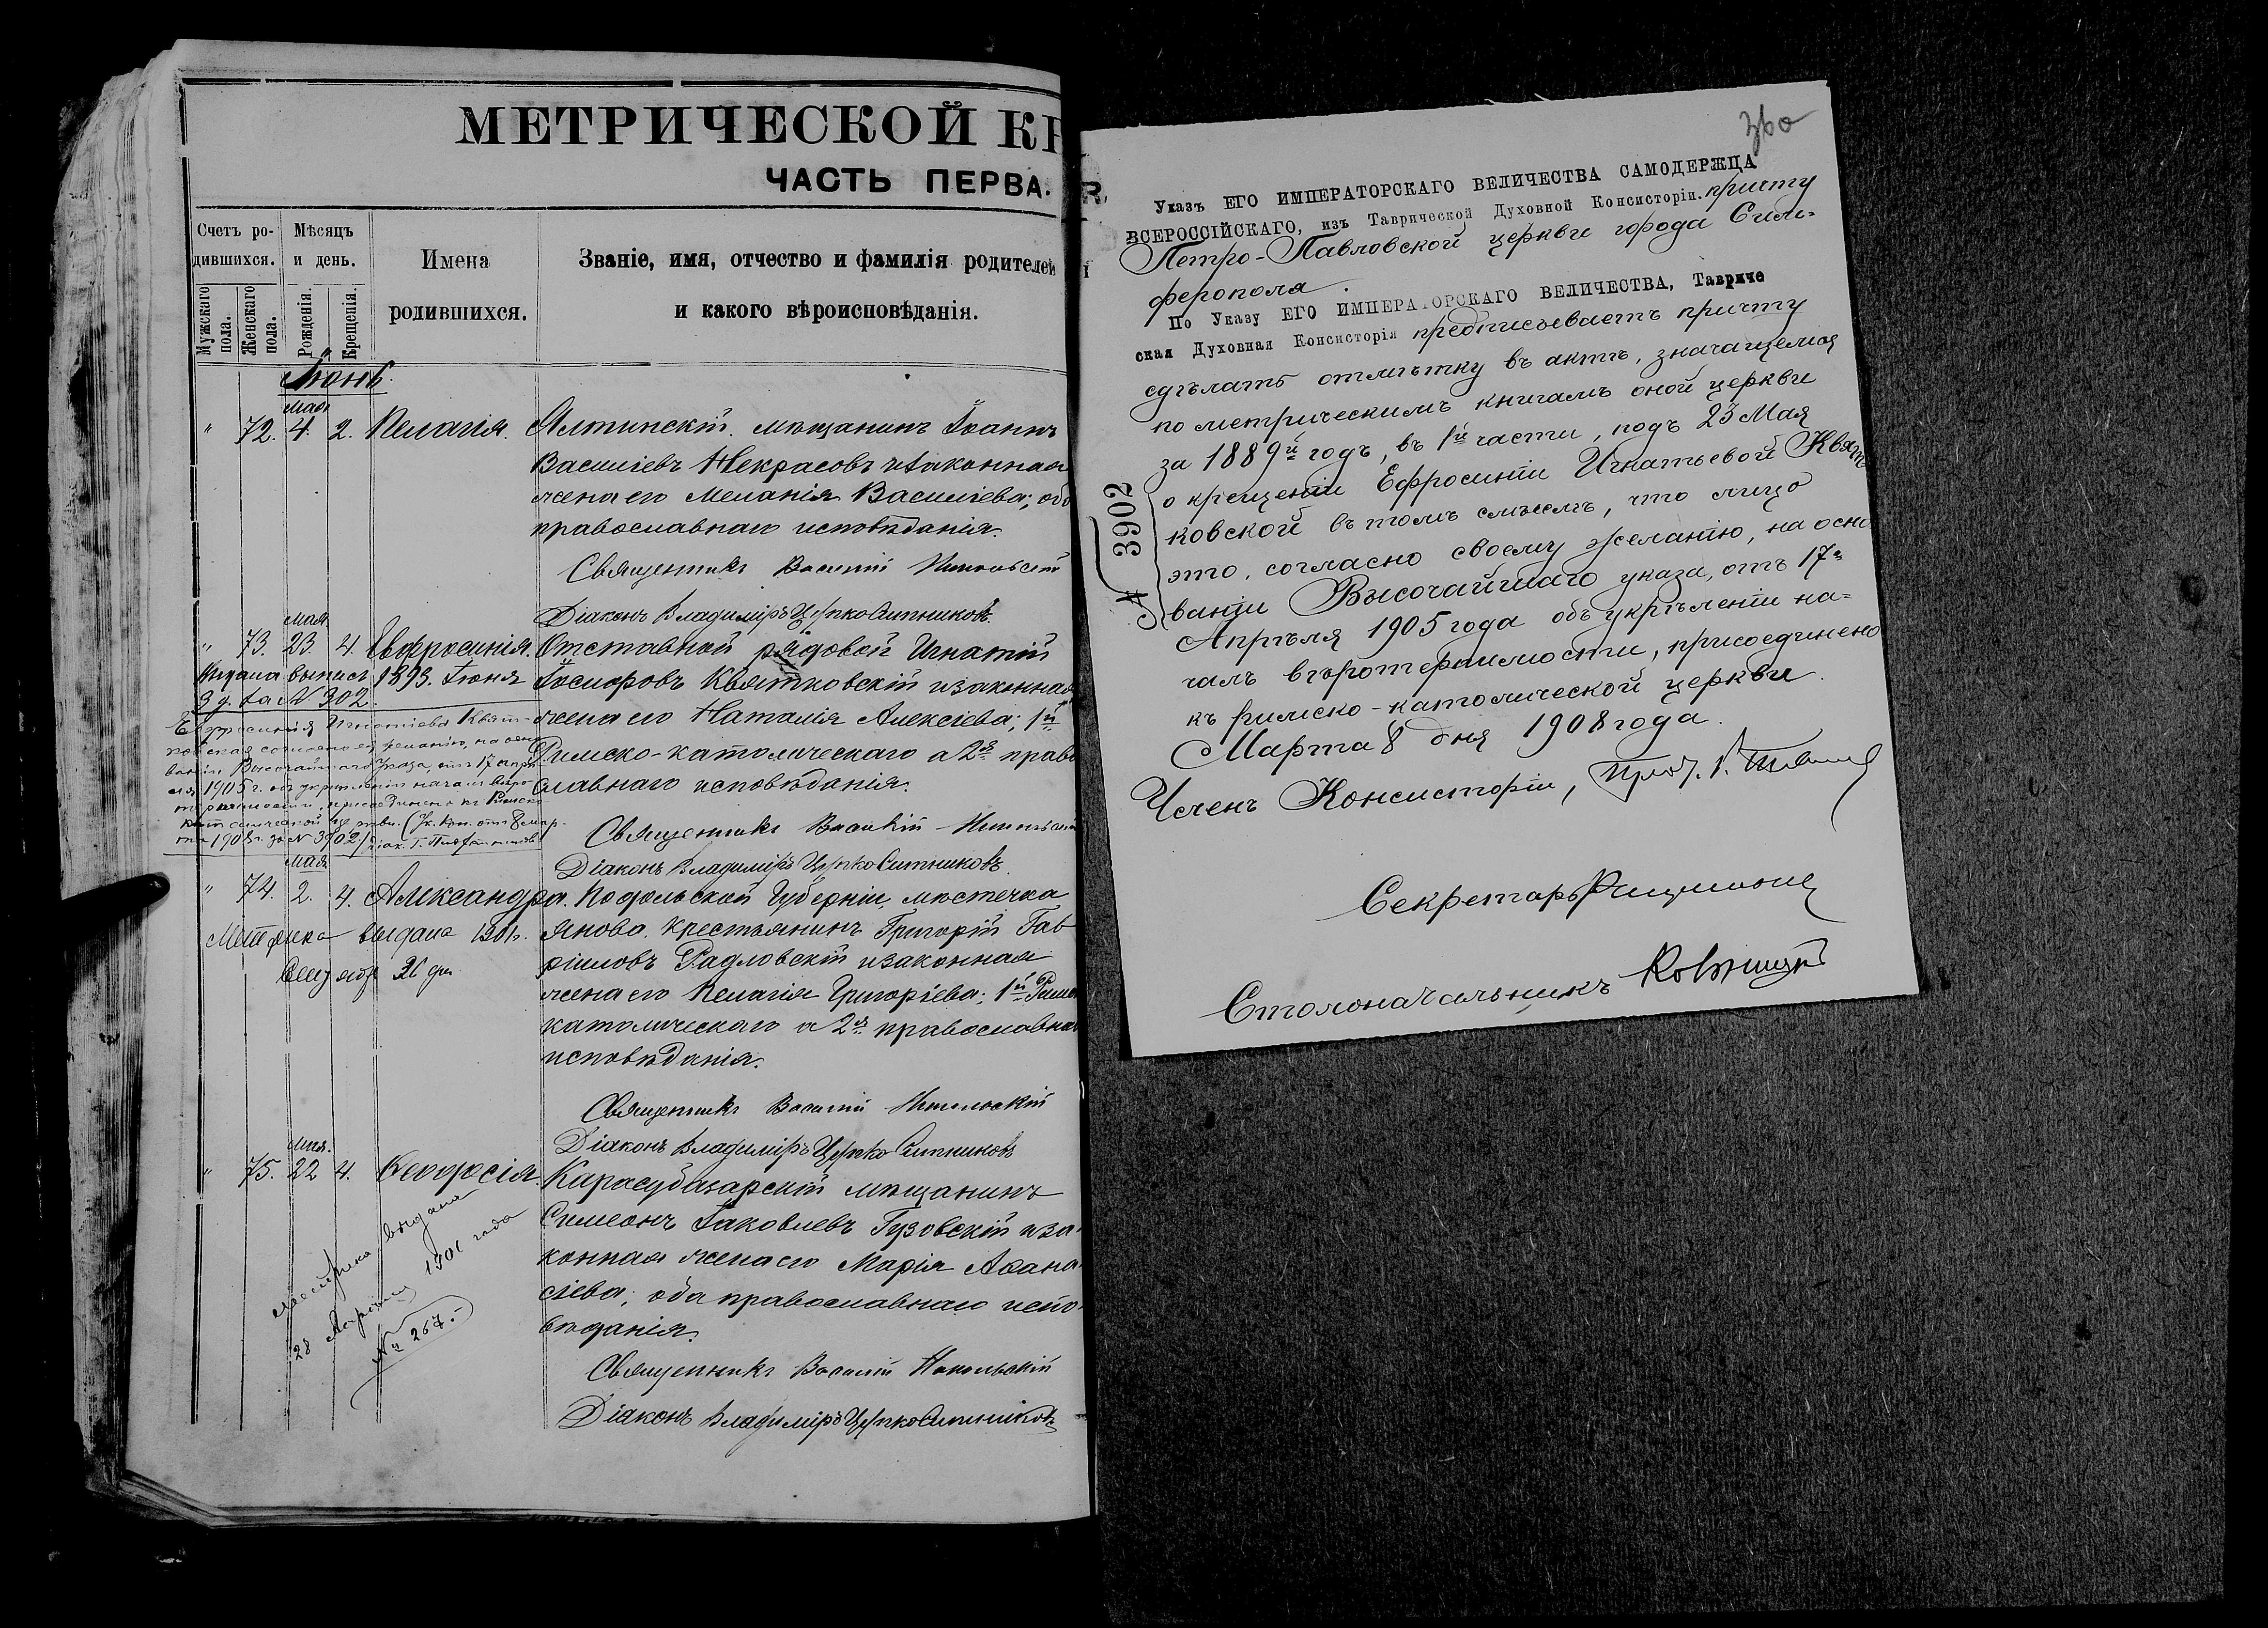 МЕТРИЧЕСКОЙ КН
ЧАСТЬ ПЕРВА.
Счетъ ро-
дившихся.
Мужскаго
пола.
Женскаго
пола.
Мѣсяцъ
и день.
Рожденія.
Крещенія.
Имена
родившихся.
Званіе, имя, отчество и фамилія родителей
и какого вѣроисповѣданія.
Іюнь.
Мая
" 72. 4. 2. Пелагія. Ялтинскій мѣщанинъ Іоаннъ
Василіевъ Некрасовъ и законная
жена его Меланія Василіева; оба
православнаго исповѣданія.
Священникъ Василій Никольскій
Діаконъ Владиміръ Церпко Ситниковъ.
Мая
" 73. 23. 4. Евфросинія. Отставной рядовой Игнатій
Іосифовъ Квятковскій и законная
жена его Наталія Алексіева; 1й
Римско-католическаго а 2я право
славнаго исповѣданія.
Выдана выпись 1893. Іюня
3 д. за № 302.
Ефросинія Игнатіева Квят-
ковская согласно ея желанію, на осно
ваніи Высочайшаго Указа, отъ 17 апрѣ
ля 1905 г. объ укрѣпленіи началъ вѣро-
терпимости, присоединена къ Римско-
католической церкви. (Ук. Кон. отъ 8 мар-
та 1908 г. за № 3902)
Священникъ Василій Никольскій
Діаконъ Владиміръ Церпко Ситниковъ.
Мая
" 74. 2. 4. Александра. Подольской Губерніи, мѣстечка
Яново, крестьянинъ Григорій Гав
ріиловъ Радловскій и законная
жена его Пелагія Григоріева; 1й Римско
католическаго а 2я православнаго
исповѣданія.
Метрика выдана 1901 г.
Сентября 26 дня
Священникъ Василій Никольскій
Діаконъ Владиміръ Церпко Ситниковъ
Мая.
" 75. 22 4. Феофосія. Карасубазарскій мѣщанинъ
Симеонъ Іаковлевъ Гузовскій и за-
конная жена его Марія Аѳана
сіева; оба православнаго испо-
вѣданія.
метрика выдана
28 1901 года
№ 267.-
Священникъ Василій Никольскій
Діаконъ Владиміръ Церпко Ситниковъ
360
Указъ ЕГО ИМПЕРАТОРСКАГО ВЕЛИЧЕСТВА САМОДЕРЖЦА
ВСЕРОССІЙСКАГО, изъ Таврической Духовной Консисторіи. причту
Петро-Павловской церкви города Сим-
ферополя.
По Указу ЕГО ИМПЕРАТОРСКАГО ВЕЛИЧЕСТВА, Тавриче
ская Духовная Консисторія предписываетъ причту
сдѣлать отмѣтку въ актѣ, значащемся
по метрическимъ книгамъ оной церкви
за 1889й годъ, въ 1й части, подъ 23 Мая
о крещеніи Ефросиніи Игнатьевой Квят
ковской въ томъ смыслѣ, что лицо
это, согласно своему желанію, на осно
ваніи Высочайшаго указа, отъ 17го
Апрѣля 1905 года объ укрѣпленіи на-
чалъ вѣротерпимости, присоединено
къ римско-католической церкви.
Марта 8 дня 1908 года.
№ 3902
Членъ Консисторіи, Прот.
Секретарь
Столоначальникъ